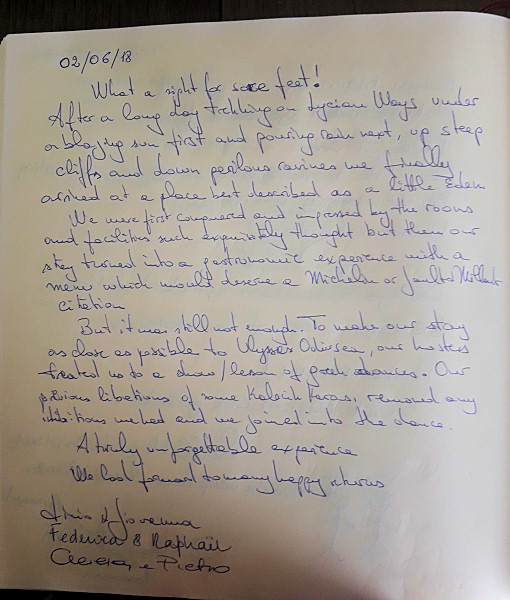 02/06/18
What a sight for sore feet!
After a long day trekking on Lycian Ways under
a blazing sun first and pouring rain next, up steep
cliffs and down perilous ravines we finally
arrived at a place best described as a little Eden
We were first conquered and impressed by the rooms
and facilities such exquisitely thought but then our
stay turned into a gastronomic experience with a
menu which would deserve a Michelin or Gault&Millaut
citation
But it was still not enough. To make our stay
as close as possible to Ulysses' Odissea, our hosters
treated us to a show/lesson of greek dances. Our
previous libations of some Kalecik Karası, removed any
inibitions we had and we joined into the dance.
A truly unforgettable experience
We look forward to many happy returns
& Giovanna
Federica & Raphaël
e Pietro